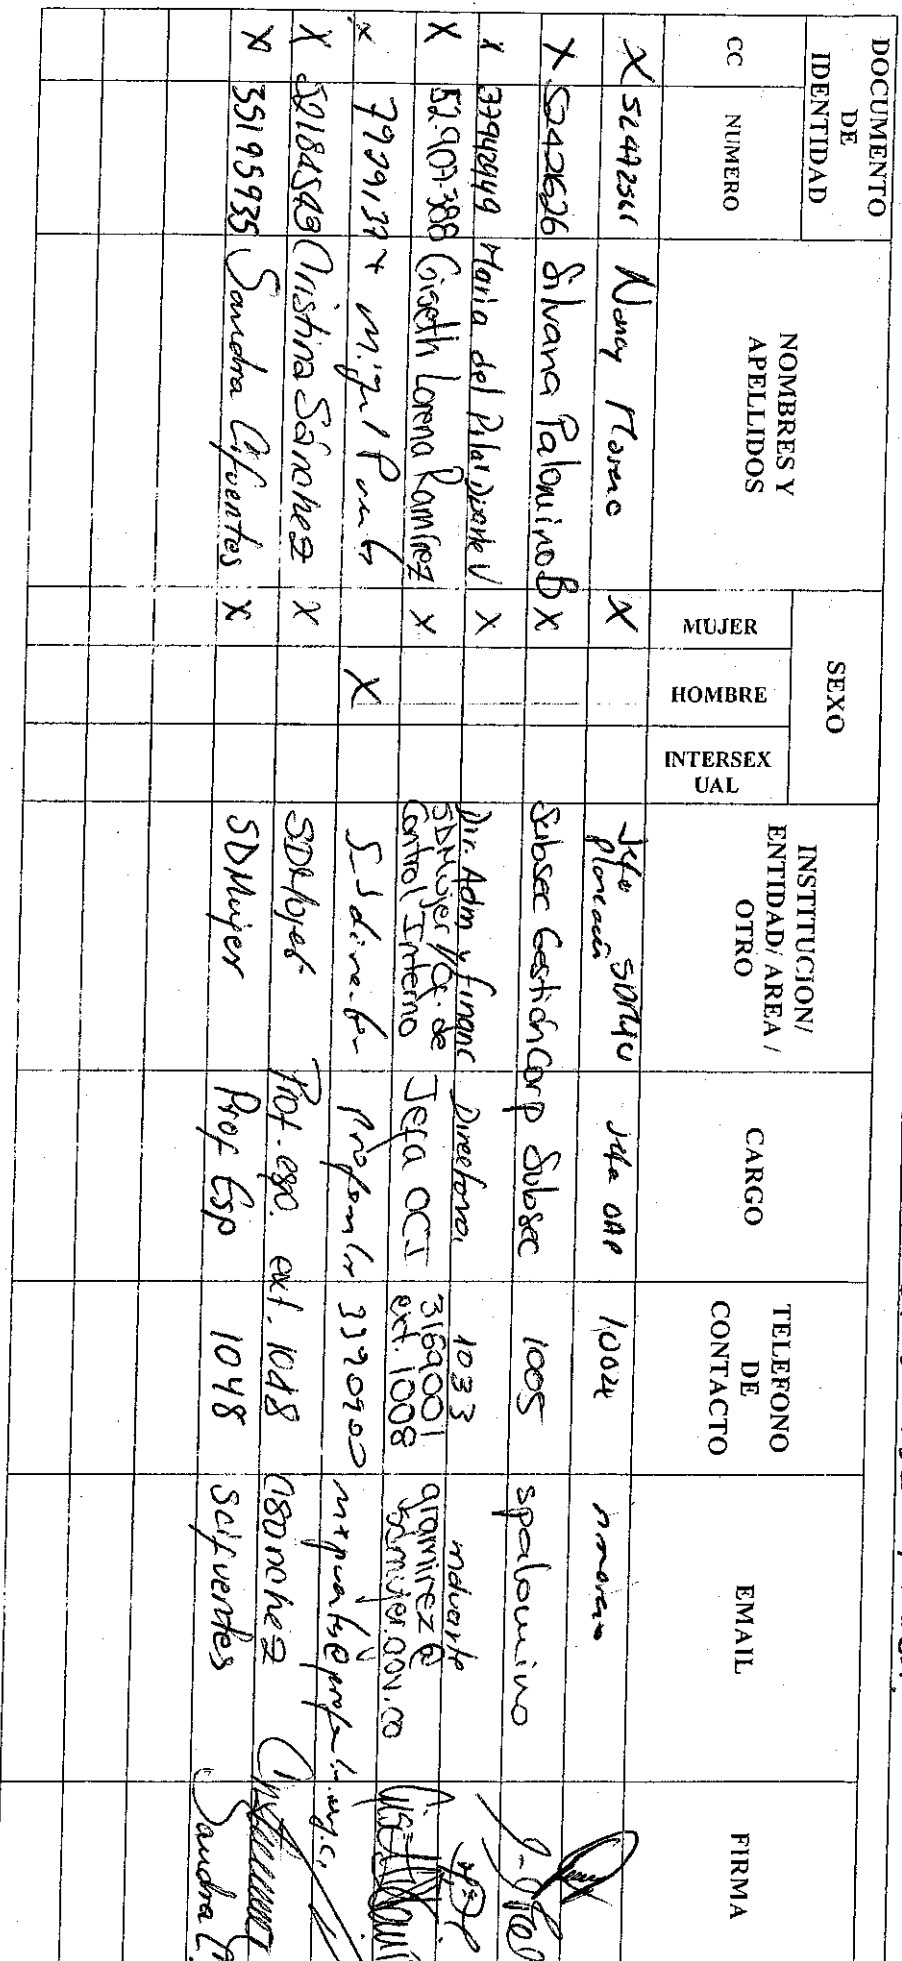 DOCUMENTO DE IDENTIDAD
CC
NUMERO
NOMBRES Y APELLIDOS
SEXO
MUJER
HOMBRE
INTERSEX UAL
INSTITUCION/ ENTIDAD/ AREA / OTRO
CARGO
TELEFONO DE CONTACTO
EMAIL
FIRMA
X Nancy Moreno X Jefe planeación Jefa OAP 1004 nmoreno
X Silvana Palomino B X Subsec Gestión Corp Subsec 1005 spalomino
X Maria del Pilar Duarte V X Dir. Adm y financ Directora 1033 mduarte
X 52.907.388 Giseth Lorena Ramírez X SDMujer / Of. de Control Interno Jefa OCI 3169001 ext. 1008 gramirez@ sdmujer.gov.co
x Miguel X 3390900
X 52184543 Cristina Sánchez X SDMujer Prof. esp. ext. 1048 csanchez
X 35195935 Sandra Cifuentes X SDMujer Prof Esp 1048 scifuentes Sandra